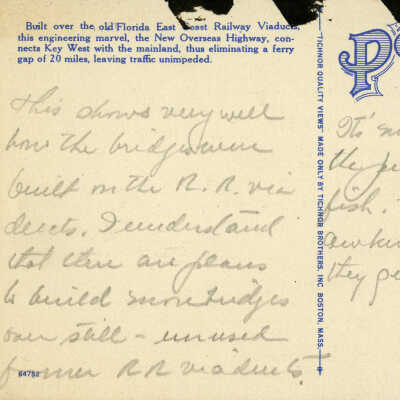 Built over the old Florida East Coast Railway Viaducts,
this engineering marvel, the New Overseas Highway, con-
nects Key West with the mainland, thus eliminating a ferry
gap of 20 miles, leaving traffic unimpeded.
This shows very well
how the bridges were
built on the R.R. via
ducts. I understand
that there are plans
to build more bridges
over still - unused
former RR viaducts.
64782
"TICHNOR QUALITY VIEWS" MADE ONLY BY TICHNOR BROTHERS, INC. BOSTON, MASS.
PO
It's
the
fish.
they